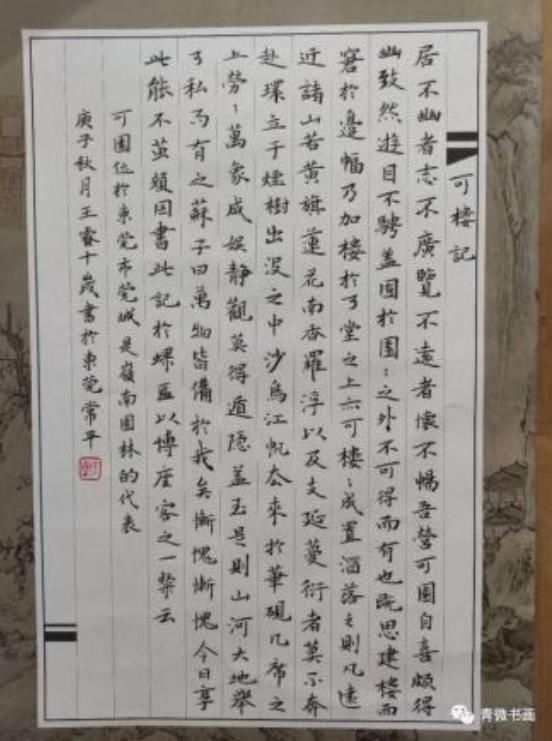 可楼記
居不幽者志不廣覽不遠者懷不暢吾營可園自喜頗得
幽致然遊目不騁盖囿於園〻之外不可得而有也既思建楼而
窘於邊幅乃加楼於可堂之上亦可楼〻成置酒落之則凡遠
近諸山若黄旗蓮花南香羅浮以及支延蔓衍者莫不奔
赴環立于烟樹出没之中沙鳥江帆去來於筆硯几席之
上勞〻萬象咸娱静觀莫得遁隱盖至是則山河大地舉
可私而有之蘇子曰萬物皆備於我矣慚愧慚愧今日享
此能不茧頭因書此記於螺盒以博座客之一粲云
可園位於東莞市莞城是嶺南園林的代表
庚子秋月王睿十歲書於東莞常平
青微书画